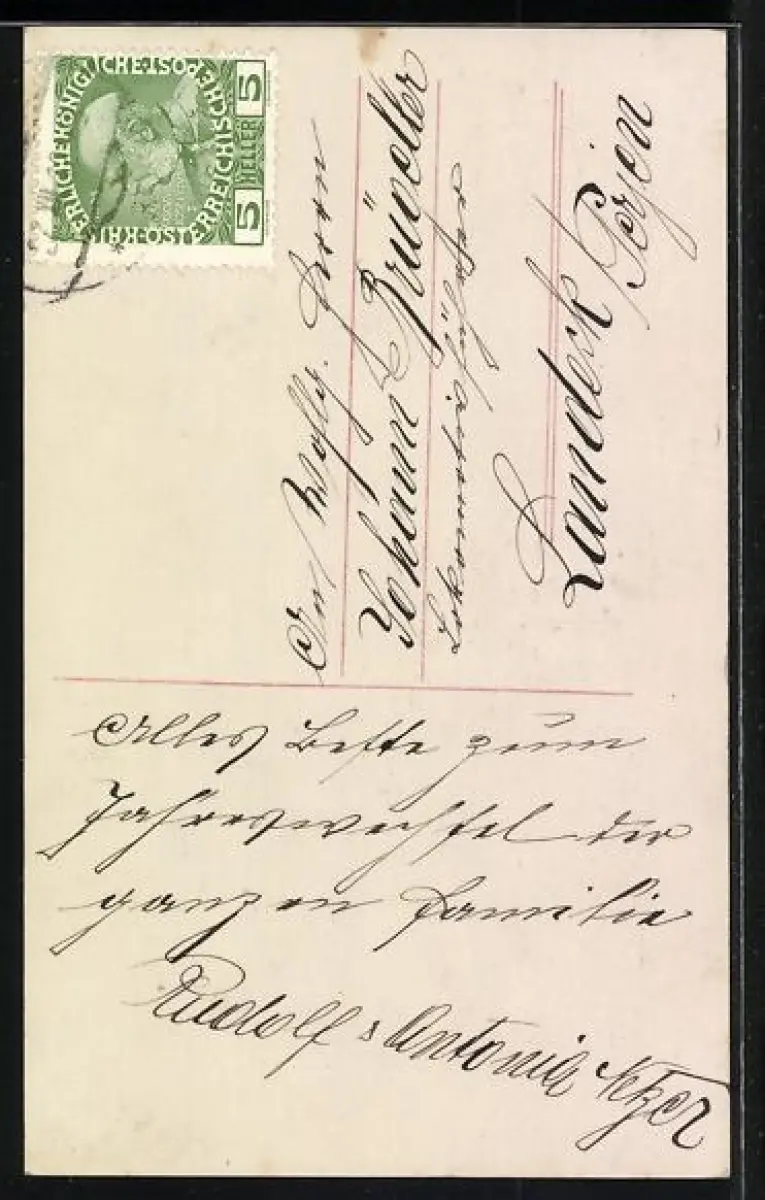 KAISERLICHE KÖNIGLICHE ÖSTERREICHISCHE POST
5 HELLER 5
An Wohlg. Herrn
Johann
Lokomotivführer
Landeck/Perjen
Alles Beste zum
Jahreswechsel der
ganzen Familie
Rudolf & Antonie Netzer